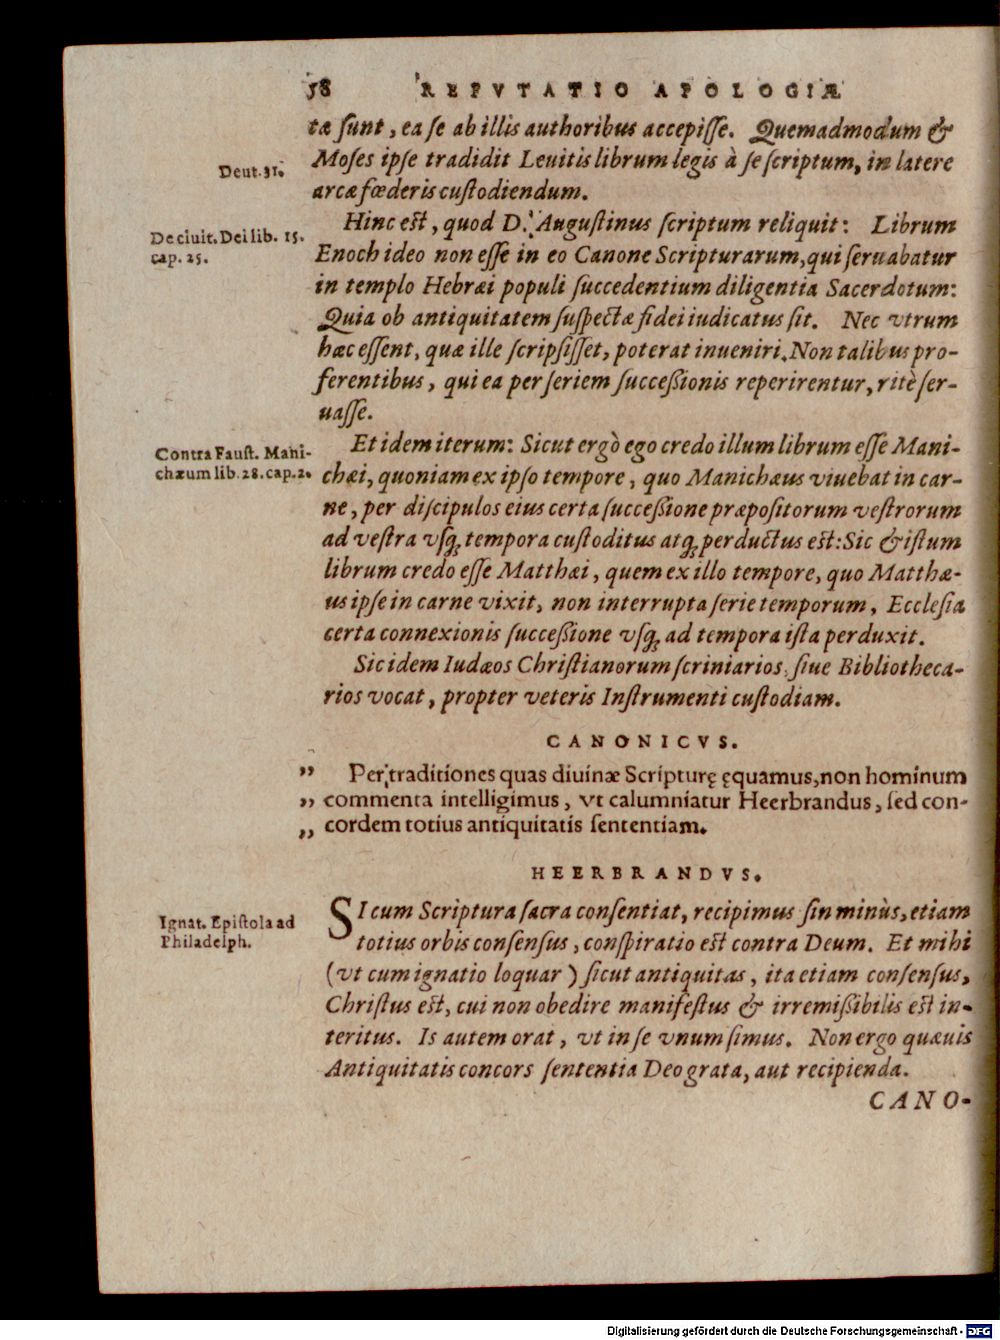 58 REFVTATIO APOLOGIÆ
tæ ſunt, ea ſe ab illis authoribus accepiſſe. Quemadmodum &
Deut. 31.
Moſes ipſe tradidit Leuitis librum legis à ſe ſcriptum, in latere
arcæ fœderis cuſtodiendum.
Hinc eſt, quod D. Auguſtinus ſcriptum reliquit: Librum
De ciuit. Dei lib. 15.
cap. 25.
Enoch ideo non eſſe in eo Canone Scripturarum, qui ſeruabatur
in templo Hebræi populi ſuccedentium diligentia Sacerdotum:
Quia ob antiquitatem ſuſpectæ fidei iudicatus ſit. Nec vtrum
hæc eſſent, quæ ille ſcripſiſſet, poterat inueniri, Non talibus pro-
ferentibus, qui ea per ſeriem ſucceßionis reperirentur, ritè ſer-
uaſſe.
Contra Fauſt. Mani-
chæum lib. 28. cap. 2.
Et idem iterum: Sicut ergò ego credo illum librum eſſe Mani-
chæi, quoniam ex ipſo tempore, quo Manichæus viuebat in car-
ne, per diſcipulos eius certa ſucceßione præpoſitorum veſtrorum
ad veſtra vſq; tempora cuſtoditus atq; perductus eſt: Sic & iſtum
librum credo eſſe Matthæi, quem ex illo tempore, quo Matthæ-
us ipſe in carne vixit, non interrupta ſerie temporum, Eccleſia
certa connexionis ſucceßione vſq; ad tempora iſta perduxit.
Sic idem Iudæos Chriſtianorum ſcriniarios, ſiue Bibliotheca-
rios vocat, propter veteris Inſtrumenti cuſtodiam.
CANONICVS.
„ Per traditiones quas diuinæ Scripturę ęquamus, non hominum
„ commenta intelligimus, vt calumniatur Heerbrandus, ſed con-
„ cordem totius antiquitatis ſententiam.
HEERBRANDVS.
Ignat. Epiſtola ad
Philadelph.
SI cum Scriptura ſacra conſentiat, recipimus ſin minùs, etiam
totius orbis conſenſus, conſpiratio eſt contra Deum. Et mihi
(vt cum ignatio loquar) ſicut antiquitas, ita etiam conſenſus,
Chriſtus eſt, cui non obedire manifeſtus & irremißibilis eſt in-
teritus. Is autem orat, vt in ſe vnum ſimus. Non ergo quæuis
Antiquitatis concors ſententia Deo grata, aut recipienda.
CANO-
Digitalisierung gefördert durch die Deutsche Forschungsgemeinschaft - DFG